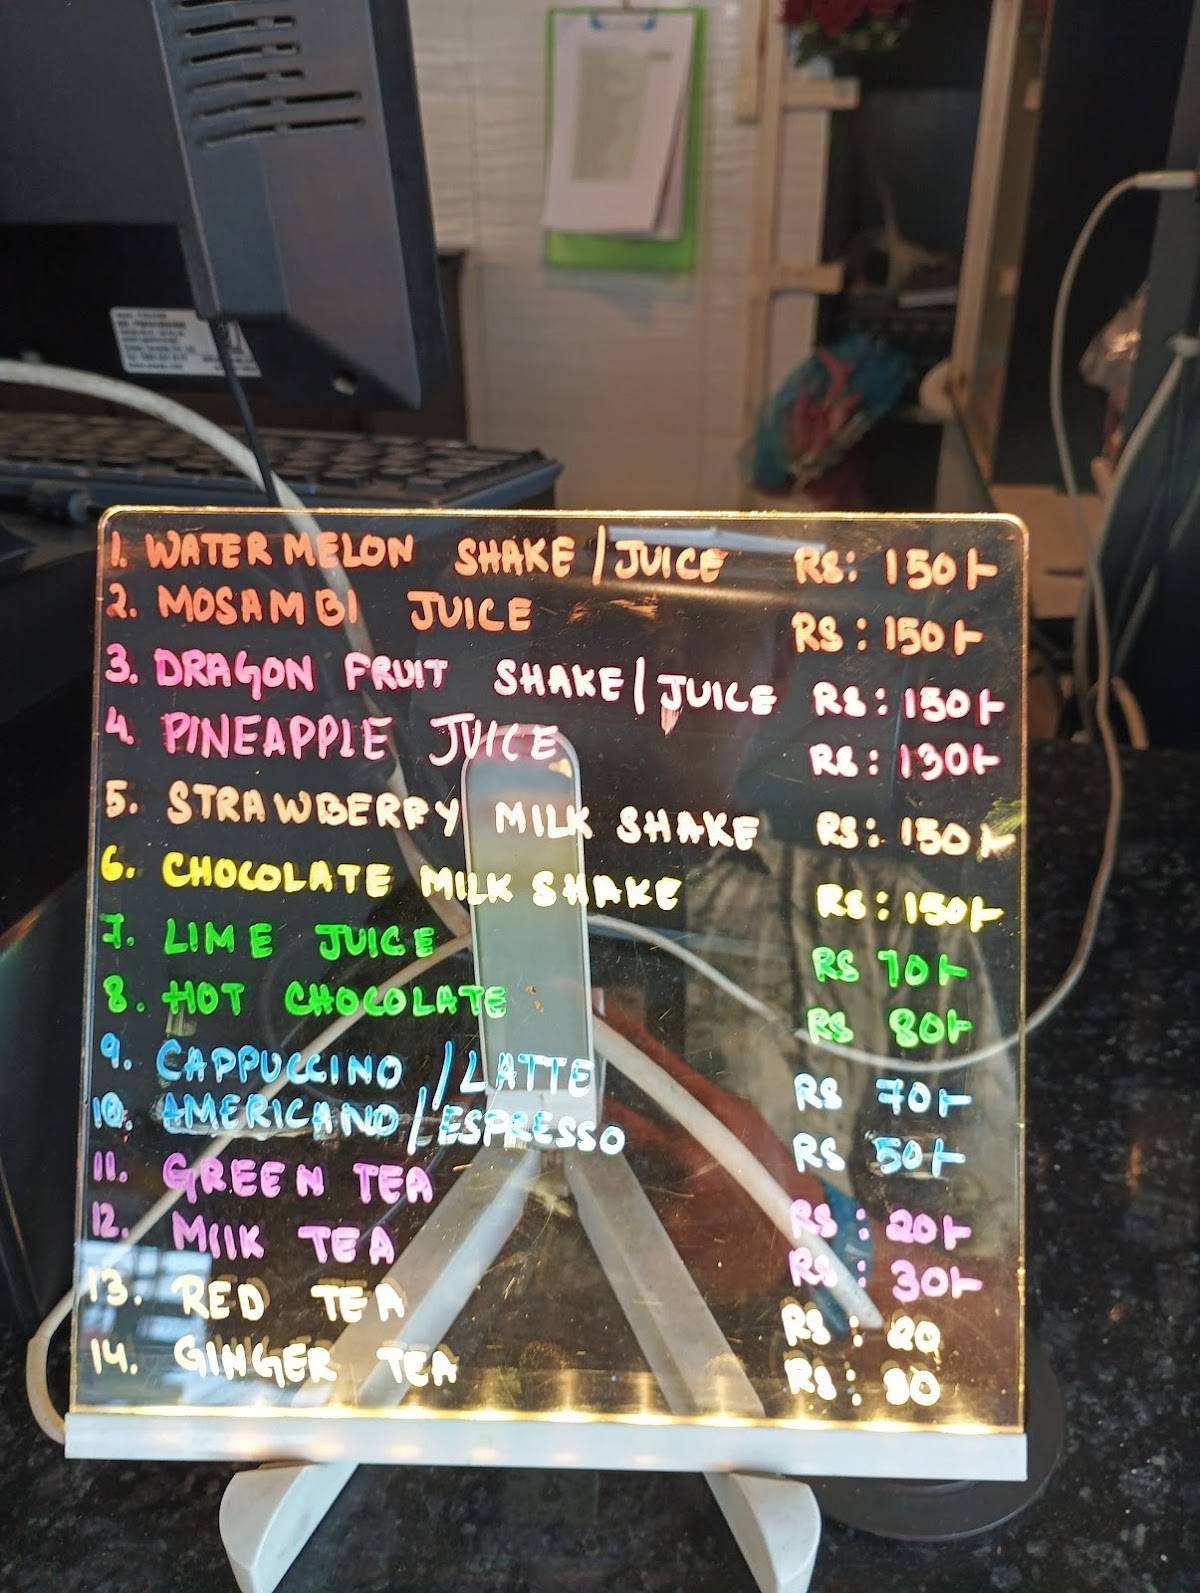 1. WATERMELON SHAKE / JUICE RS: 150/-
2. MOSAMBI JUICE RS: 150/-
3. DRAGON FRUIT SHAKE / JUICE RS: 150/-
4. PINEAPPLE JUICE RS: 130/-
5. STRAWBERRY MILK SHAKE RS: 150/-
6. CHOCOLATE MILK SHAKE RS: 150/-
7. LIME JUICE RS 70/-
8. HOT CHOCOLATE RS 80/-
9. CAPPUCCINO / LATTE RS 70/-
10. AMERICANO / ESPRESSO RS 50/-
11. GREEN TEA RS: 20/-
12. MILK TEA RS: 30/-
13. RED TEA RS: 20
14. GINGER TEA RS: 30